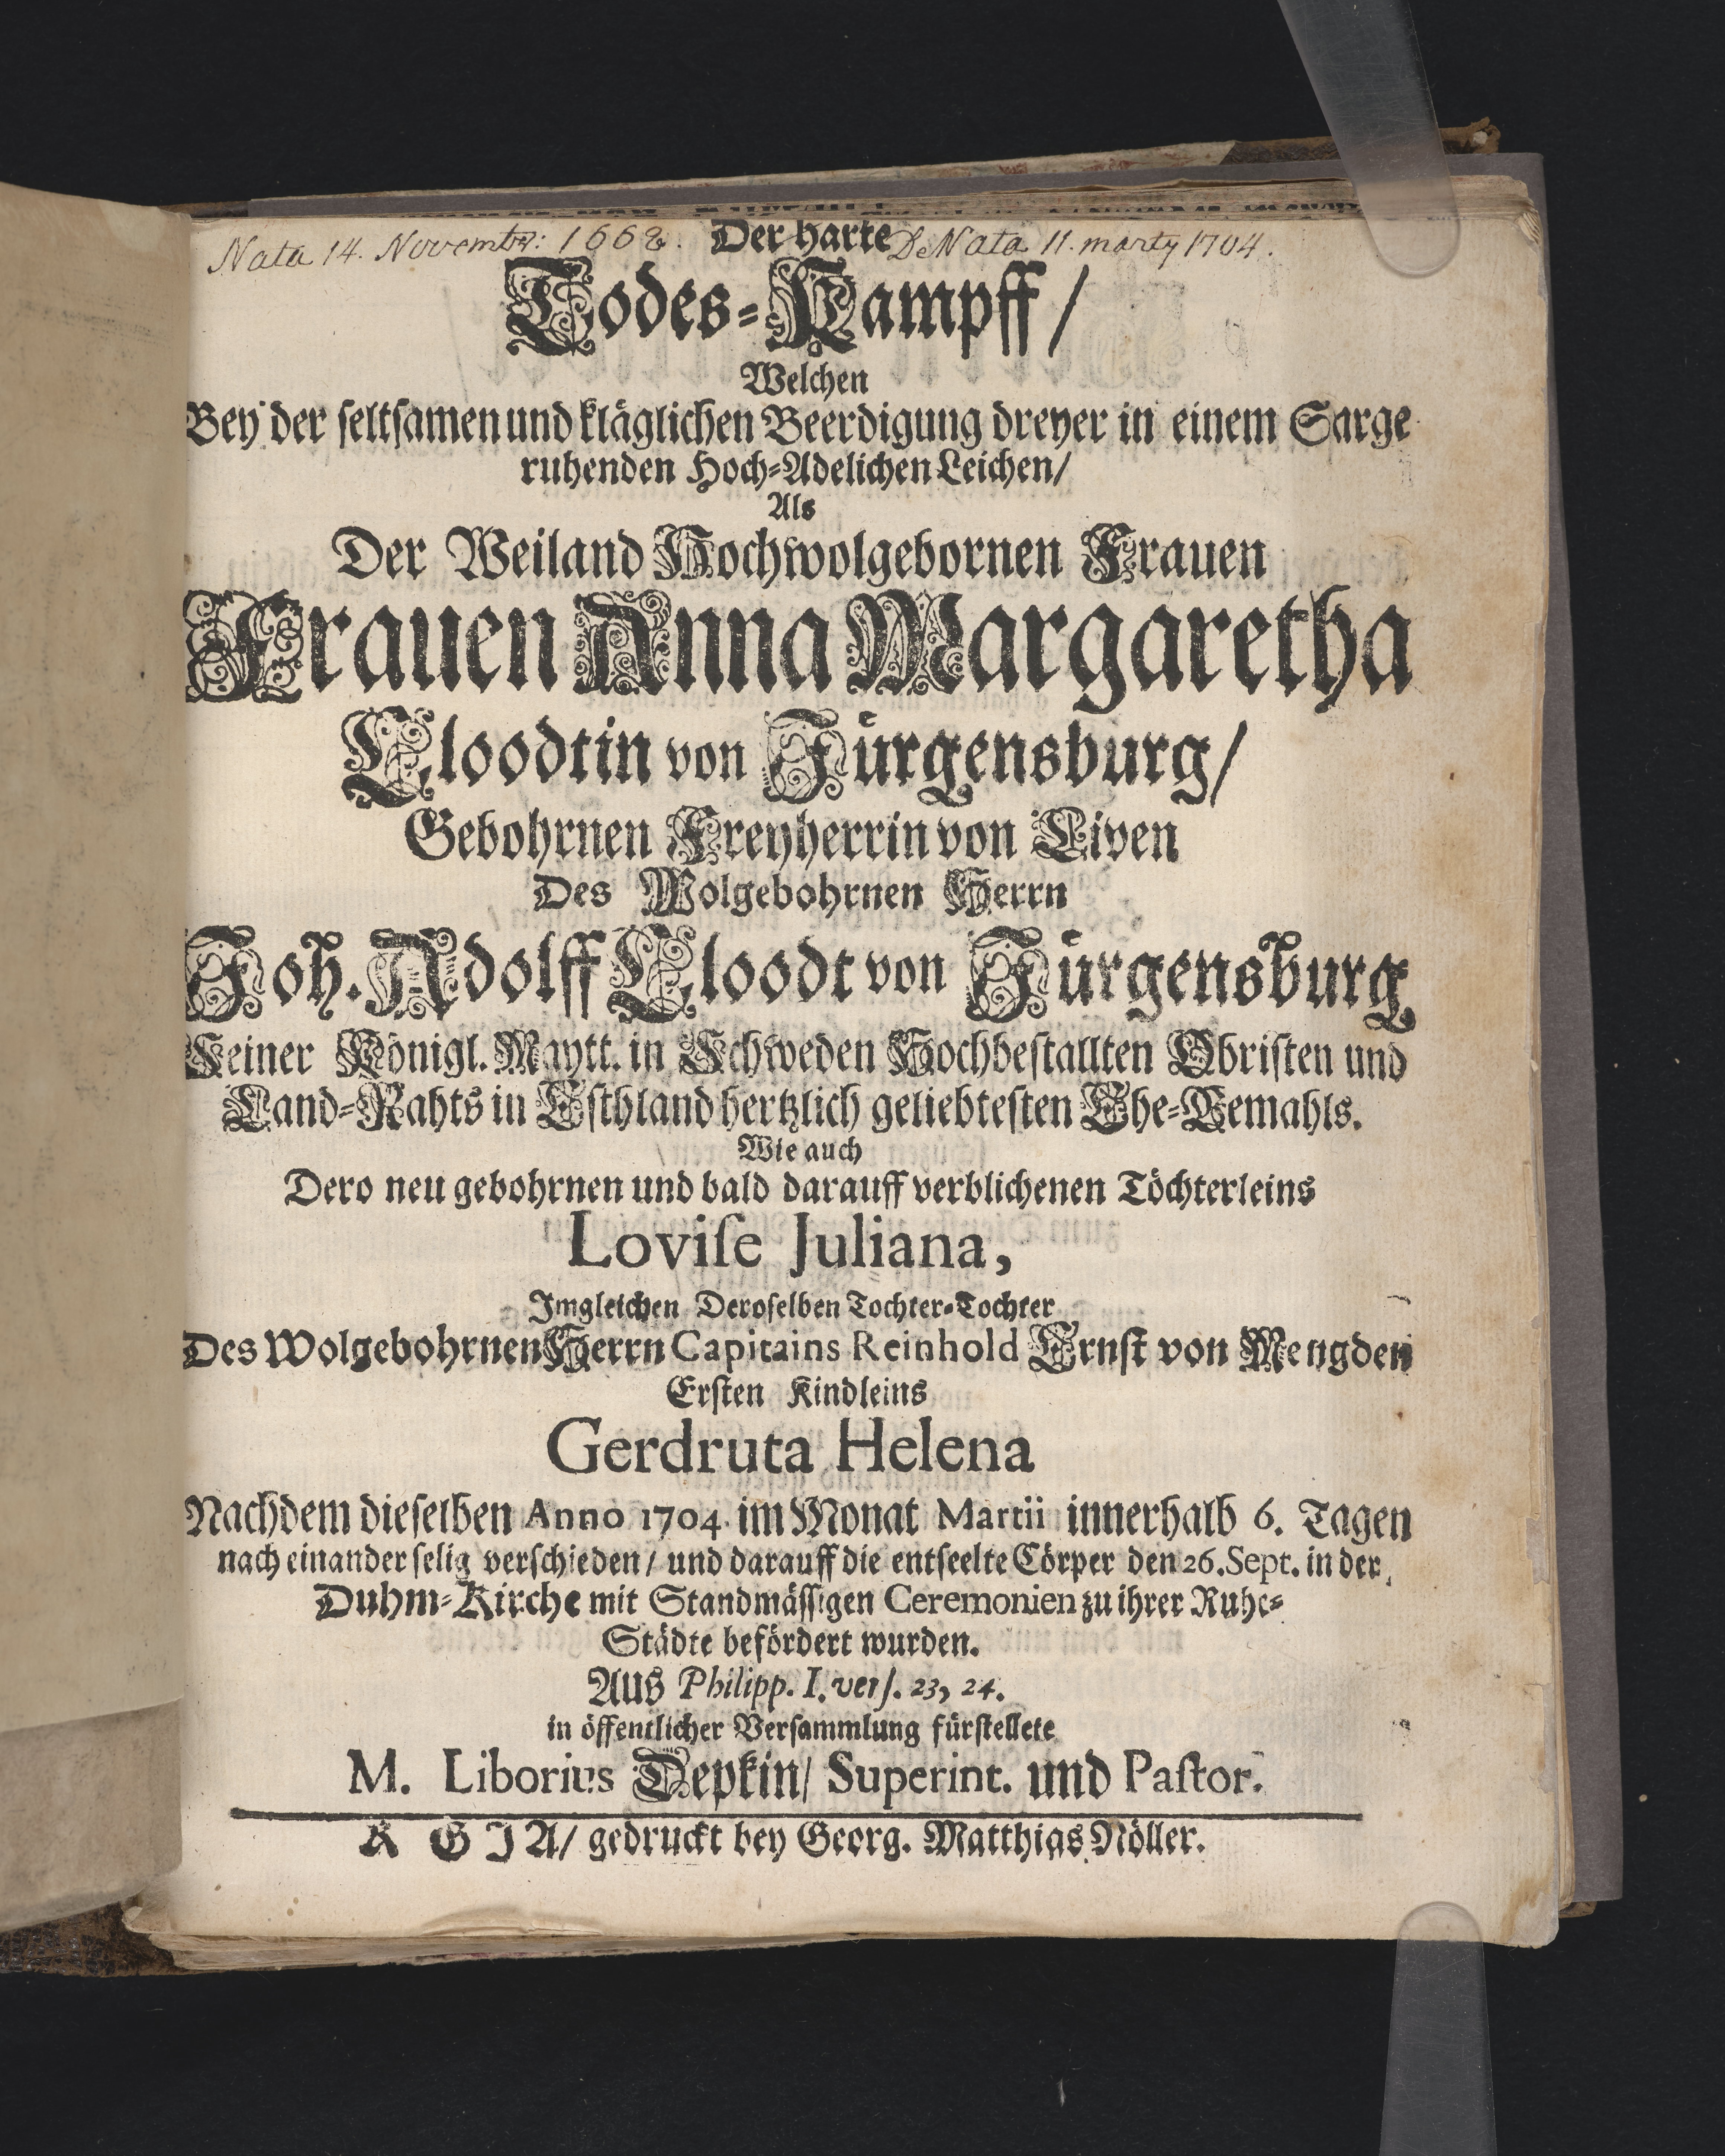 Nata 14. Novembr: 1662. Der harte DeNata 11. marty 1704.
Todes-Kampff/
Welchen
Bey der seltsamen und kläglichen Beerdigung dreyer in einem Sarge
ruhenden Hoch-Adelichen Leichen/
Als
Der Weiland Hochwolgebornen Frauen
Frauen Anna Margaretha
Cloodtin von Jürgensburg/
Gebohrnen Freyherrin von Liven
Des Wolgebohrnen Herrn
Joh. Adolff Cloodt von Jürgensburg
Seiner Königl. Maytt. in Schweden Hochbestallten Obristen und
Land-Rahts in Esthland hertzlich geliebtesten Ehe-Gemahls.
Wie auch
Dero neu gebohrnen und bald darauff verblichenen Töchterleins
Loviſe Juliana,
Imgleichen Deroselben Tochter-Tochter
Des Wolgebohrnen Herrn Capitains Reinhold Ernst von Mengden
Ersten Kindleins
Gerdruta Helena
Nachdem dieselben Anno 1704. im Monat Martii innerhalb 6. Tagen
nach einander selig verschieden/ und darauff die entseelte Cörper den 26. Sept. in der
Duhm-Kirche mit Standmässigen Ceremonien zu ihrer Ruhe-
Städte befördert wurden.
Aus Philipp. I. verſ. 23, 24.
in öffentlicher Versammlung fürstellete
M. Liborius Depkin/ Superint. und Paſtor.
R G J A/ gedruckt bey Georg. Matthias Nöller.